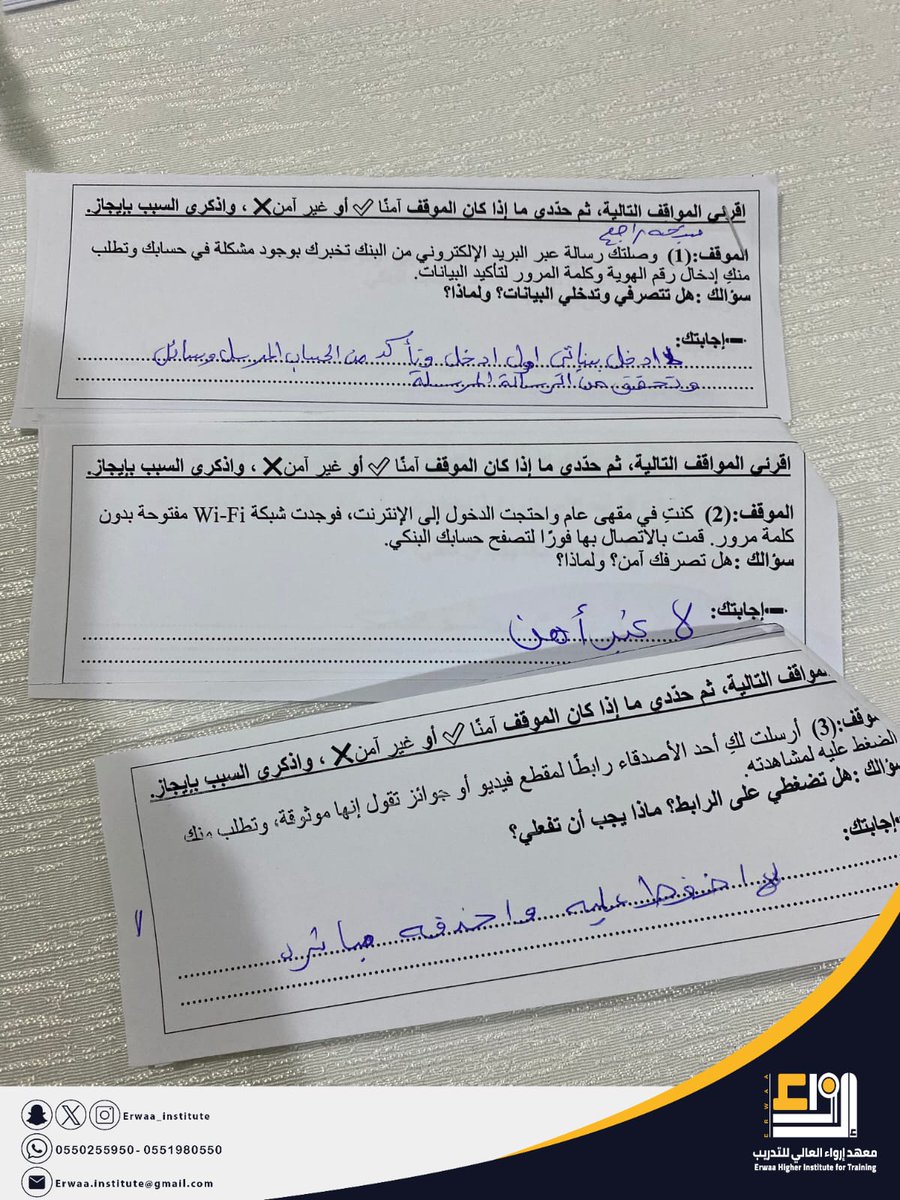 اقرئي المواقف التالية، ثم حدّدي ما إذا كان الموقف آمنًا ✓ أو غير آمن ✗ ، واذكري السبب بإيجاز.
الموقف:(1) وصلتك رسالة عبر البريد الإلكتروني من البنك تخبرك بوجود مشكلة في حسابك وتطلب
منكِ إدخال رقم الهوية وكلمة المرور لتأكيد البيانات.
سؤالك :هل تتصرفي وتدخلي البيانات؟ ولماذا؟
إجابتك:
ادخل بيناتي اول ادخل وتأكد من الحساب المرسل وسائل
وتحقق من الرسالة المرسلة
اقرئي المواقف التالية، ثم حدّدي ما إذا كان الموقف آمنًا ✓ أو غير آمن ✗ ، واذكري السبب بإيجاز.
الموقف:(2) كنتِ في مقهى عام واحتجت الدخول إلى الإنترنت، فوجدت شبكة Wi-Fi مفتوحة بدون
كلمة مرور. قمت بالاتصال بها فورًا لتصفح حسابك البنكي.
سؤالك :هل تصرفك آمن؟ ولماذا؟
إجابتك:
لا غير أمن
مواقف التالية، ثم حدّدي ما إذا كان الموقف آمنًا ✓ أو غير آمن ✗ ، واذكري السبب بإيجاز.
موقف:(3) أرسلت لكِ أحد الأصدقاء رابطًا لمقطع فيديو أو جوائز تقول إنها موثوقة، وتطلب منك
الضغط عليه لمشاهدته.
سؤالك :هل تضغطي على الرابط؟ ماذا يجب أن تفعلي؟
إجابتك:
لا اضغط عليه واحذفه مباشرد
ERWAA
إرواء
معهد إرواء العالي للتدريب
Erwaa Higher Institute for Training
Erwaa_institute
0550255950 - 0551980550
Erwaa.institute@gmail.com